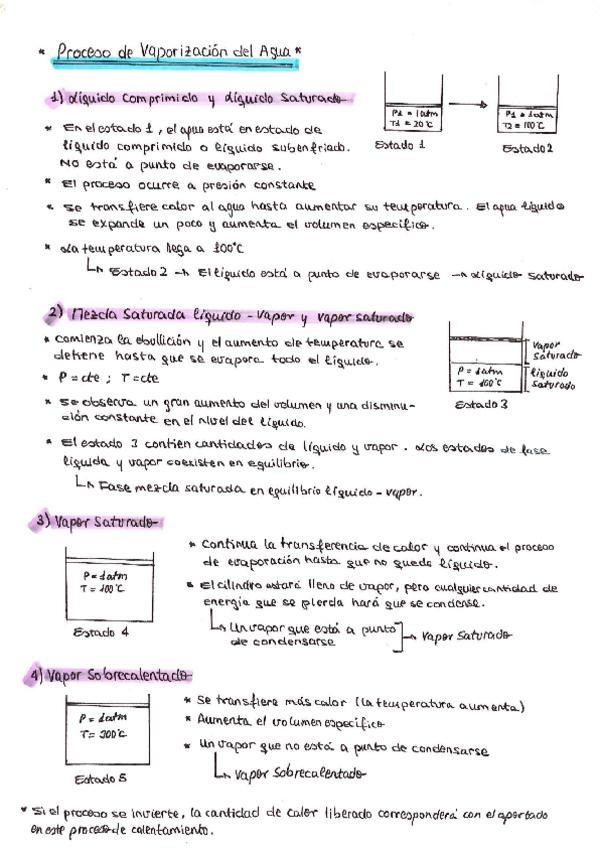 * Proceso de Vaporización del Agua *
1) Líquido Comprimido y Líquido Saturado
P1 = 1atm
T1 = 20°C
Estado 1
P1 = 1atm
T2 = 100°C
Estado 2
* En el estado 1, el agua está en estado de
líquido comprimido o líquido subenfriado.
No está a punto de evaporarse.
* El proceso ocurre a presión constante
* Se transfiere calor al agua hasta aumentar su temperatura. El agua líquida
se expande un poco y aumenta el volumen específico.
* La temperatura llega a 100°C
↳ Estado 2 → El líquido está a punto de evaporarse → Líquido Saturado
2) Mezcla Saturada líquido - vapor y vapor saturado
* Comienza la ebullición y el aumento de temperatura se
detiene hasta que se evapora todo el líquido.
* P = cte ; T = cte
* Se observa un gran aumento del volumen y una disminu-
ción constante en el nivel del líquido.
* El estado 3 contien cantidades de líquido y vapor. Los estados de fase
líquida y vapor coexisten en equilibrio.
↳ Fase mezcla saturada en equilibrio líquido - vapor.
Vapor
Saturado
P = 1atm
T = 100°C
líquido
saturado
Estado 3
3) Vapor Saturado
P = 1atm
T = 100°C
Estado 4
* Continua la transferencia de calor y continua el proceso
de evaporación hasta que no quede líquido.
* El cilindro estará lleno de vapor, pero cualquier cantidad de
energía que se pierda hará que se condense.
↳ Un vapor que está a punto
de condensarse → Vapor Saturado
4) Vapor Sobrecalentado
P = 1atm
T = 300°C
Estado 5
* Se transfiere más calor (la temperatura aumenta)
* Aumenta el volumen específico
* Un vapor que no está a punto de condensarse
↳ Vapor Sobrecalentado
* Si el proceso se invierte, la cantidad de calor liberado corresponderá con el aportado
en este proceso de calentamiento.